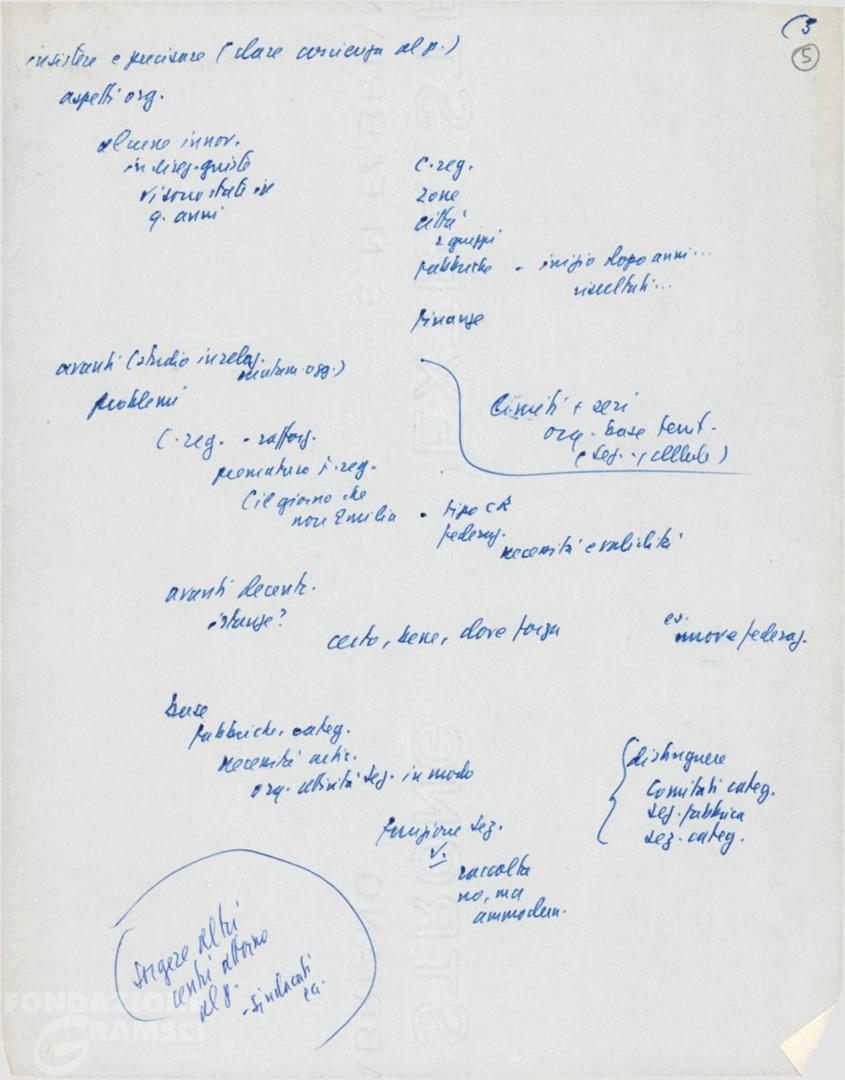 (3
5
insistere e precisare (dare coscienza al p.)
aspetti org.
alcune innov.
vi sono state in
q. anni
C. reg.
zone
città
2 gruppi
fabbriche - inizio dopo anni...
risultati...
finanze
avanti (studio in relaz.
mutam. ogg.)
problemi
Limiti + seri
org. base terr.
(sez. - (cellule)
C. reg. - rafforz.
prematuro F. reg.
(il giorno che
non Emilia
. tipo CR
federaz.
necessità e validità
avanti decentr.
istanze?
certo, bene, dove forza
es.
nuove federaz.
base
fabbriche, categ.
necessità artic.
org. attività sez. in modo
distinguere
Comitati categ.
sez. fabbrica
sez. categ.
funzione sez.
raccolta
no, ma
ammodern.
sorgere altri
centri attorno
al p.
- sindacati
ec.
FONDAZIONE
GRAMSCI